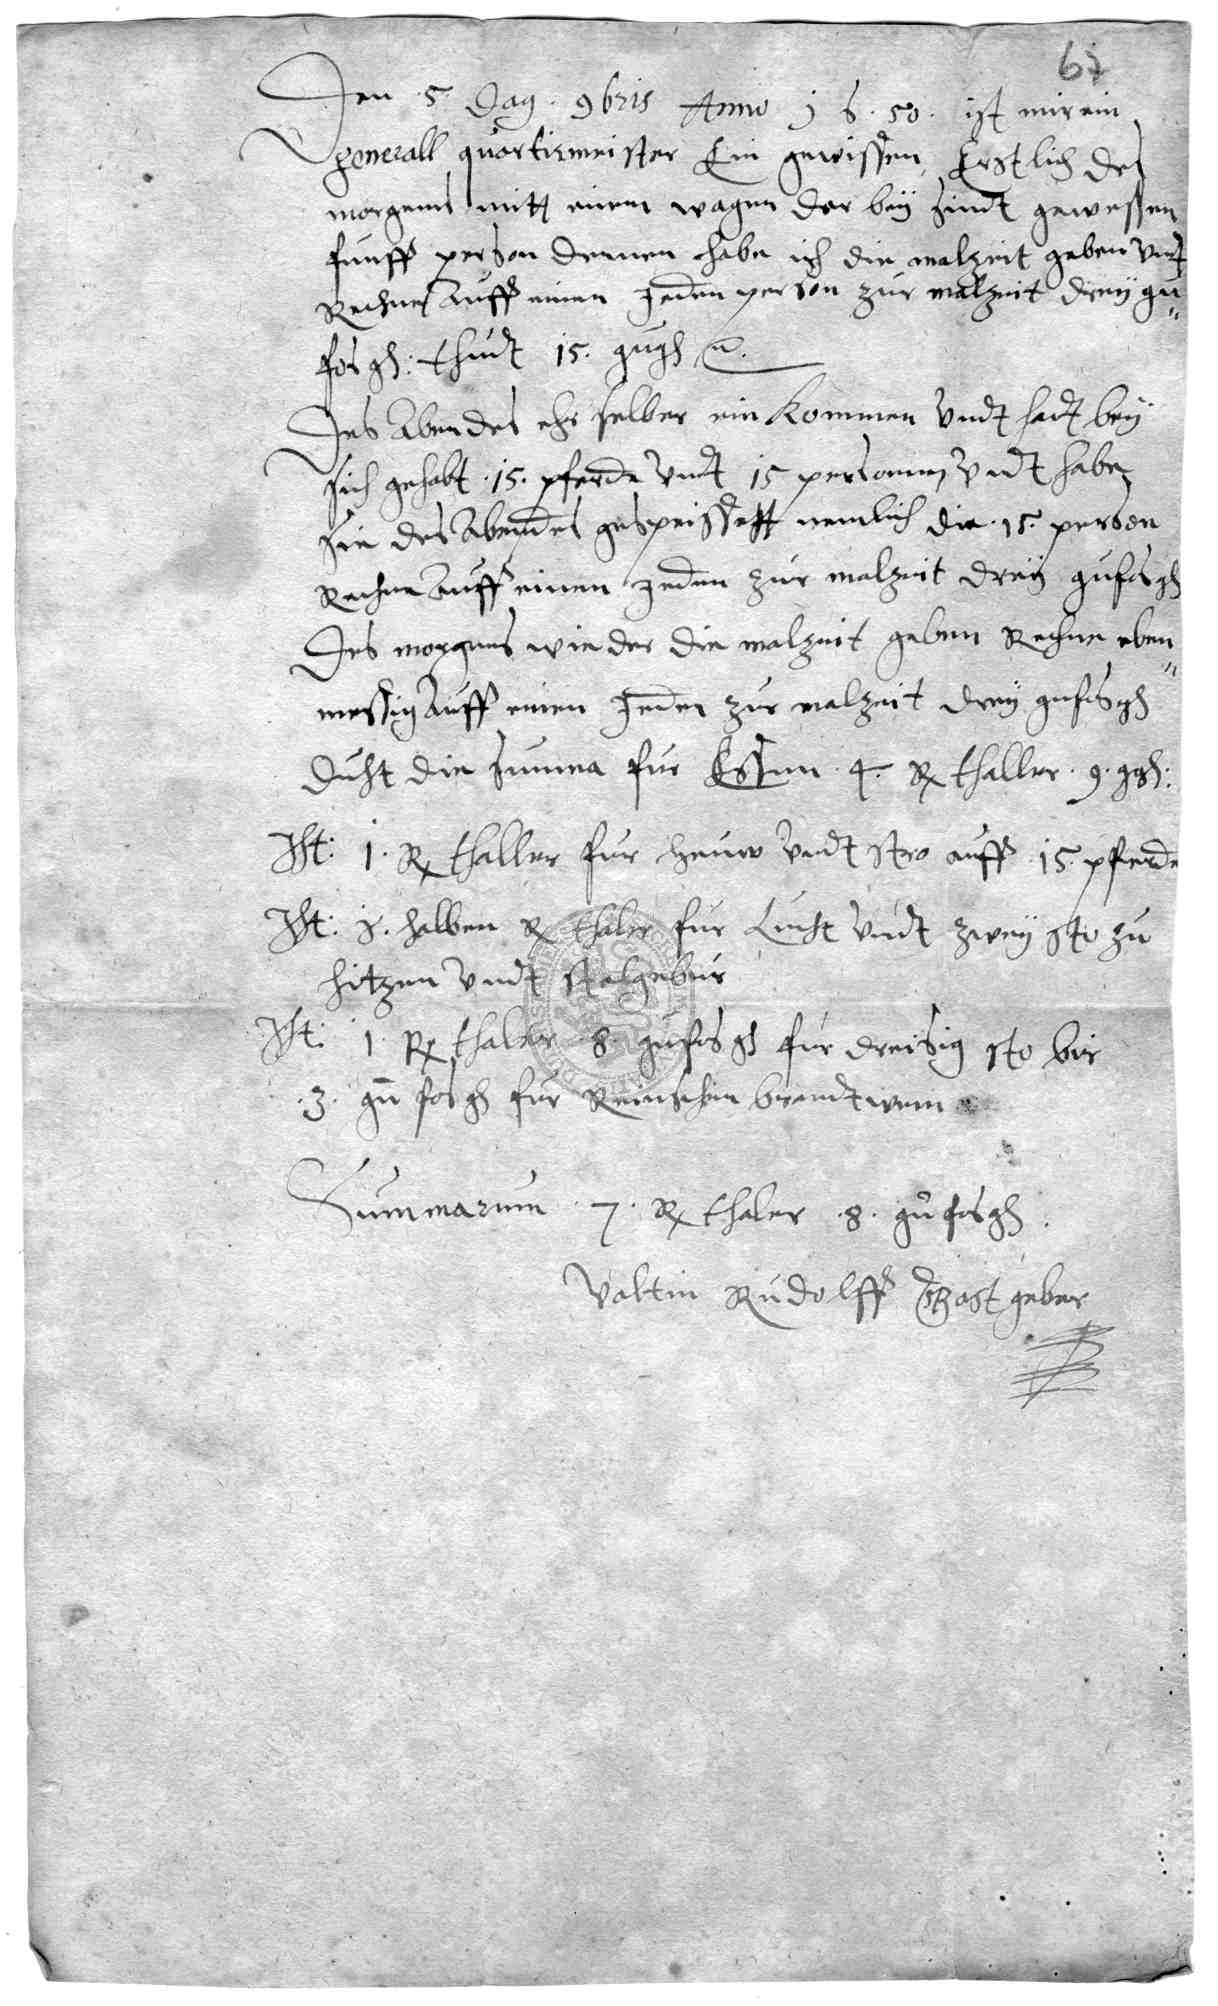 67
Den 5 Dag 9bris Anno 1 6. 50. ist mir ein
generall quartirmeister Ein gewissen, Erstlich des
morgens mitt einem wagen der beÿ sindt gewessen
funff person denen habe ich die malzeit geben vndt
Rechne Auff einen Jeden person zur malzeit dreÿ gu=
fosgh: thudt 15. gugh
Des Abendes ehr selber ein kommen Vndt hadt beÿ
sich gehabt .15. pferde Vndt 15 personnen Vndt habe
sie des Abendes gespeissett nemlich die .15. person
Rechne Auff einen Jeden zur malzeit dreÿ gufosgh
Des morgens wieder die malzeit geben Rechne eben=
messig Auff einen Jeden zur malzeit dreÿ gufosgh
Duht die summa fur Essen .4. R thaller .9. ggh:
Jtt: 1. R thaller fur heuw Vndt stro auff 15 pferde
Jtt: halben R thaler fur Lucht Vndt zweÿ sto zu
hitzen Vndt stalgebur
Jtt: 1 R thaler .8. gufosgh fur dreisig sto bir
.3. gu fosgh fur Reinschen brandtwein
Summarum .7. R thaler .8. gufosgh.
Valtin Rudolff Gastgeber